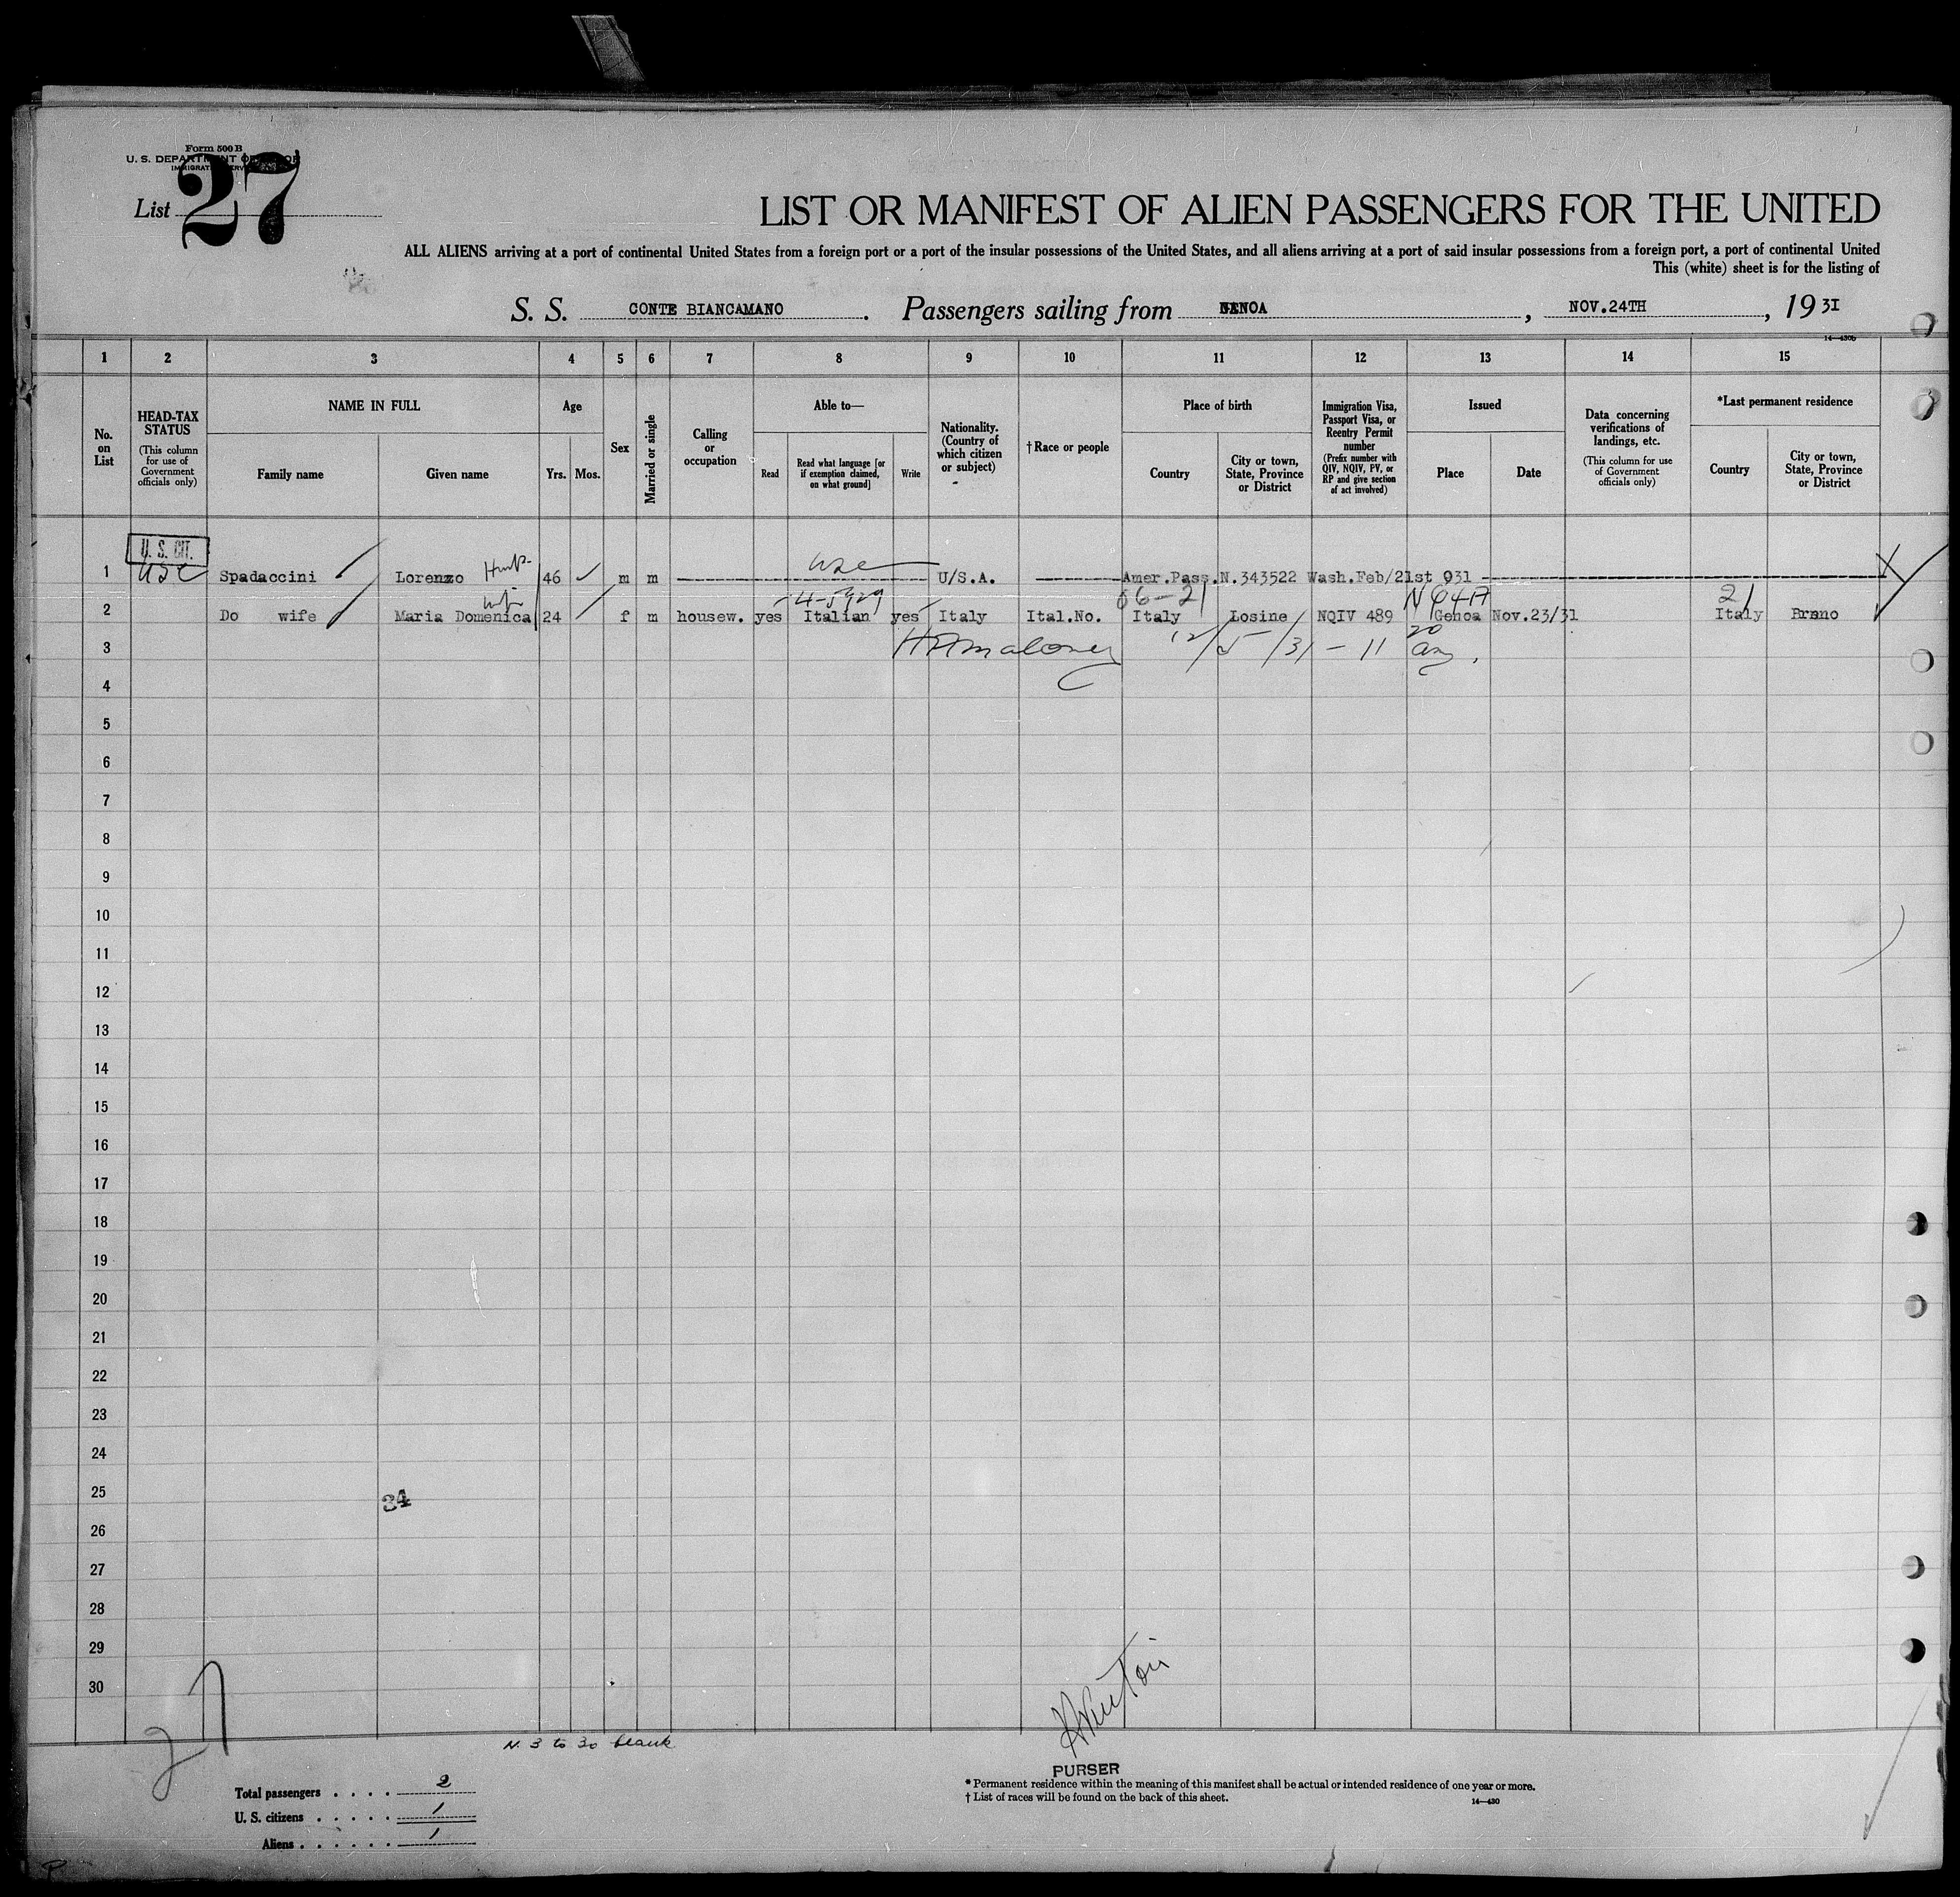 Form 500 B
U. S. DEPARTMENT OF LABOR
List 27
LIST OR MANIFEST OF ALIEN PASSENGERS FOR THE UNITED
ALL ALIENS arriving at a port of continental United States from a foreign port or a port of the insular possessions of the United States, and all aliens arriving at a port of said insular possessions from a foreign port, a port of continental United
This (white) sheet is for the listing of
S. S. CONTE BIANCAMANO. Passengers sailing from GENOA, NOV.24TH, 1931
14—430b
1 2 3 4 5 6 7 8 9 10 11 12 13 14 15
No. on List
HEAD-TAX STATUS (This column for use of Government officials only)
NAME IN FULL
Family name
Given name
Age
Yrs.
Mos.
Sex
Married or single
Calling or occupation
Able to—
Read
Read what language [or if exemption claimed, on what ground]
Write
Nationality. (Country of which citizen or subject)
†Race or people
Place of birth
Country
City or town, State, Province or District
Immigration Visa, Passport Visa, or Reentry Permit number (Prefix number with QIV, NQIV, PV, or RP and give section of act involved)
Issued
Place
Date
Data concerning verifications of landings, etc. (This column for use of Government officials only)
*Last permanent residence
Country
City or town, State, Province or District
U. S. CIT.
1 USC Spadaccini Lorenzo Husb. 46 m m USC U/S.A. Amer.Pass.N.343522 Wash.Feb/21st 931
2 Do wife Maria Domenica wife 24 f m housew. yes Italian yes Italy Ital.No. Italy Losine NQIV 489 Genoa Nov.23/31 Italy Breno
3 12/5/31 - 11
4
5
6
7
8
9
10
11
12
13
14
15
16
17
18
19
20
21
22
23
24
25
34
26
27
28
29
30
27
N. 3 to 30 blank
PURSER
Total passengers . . . . 2
U. S. citizens . . . . . 1
Aliens . . . . . . 1
* Permanent residence within the meaning of this manifest shall be actual or intended residence of one year or more.
† List of races will be found on the back of this sheet.
14—430